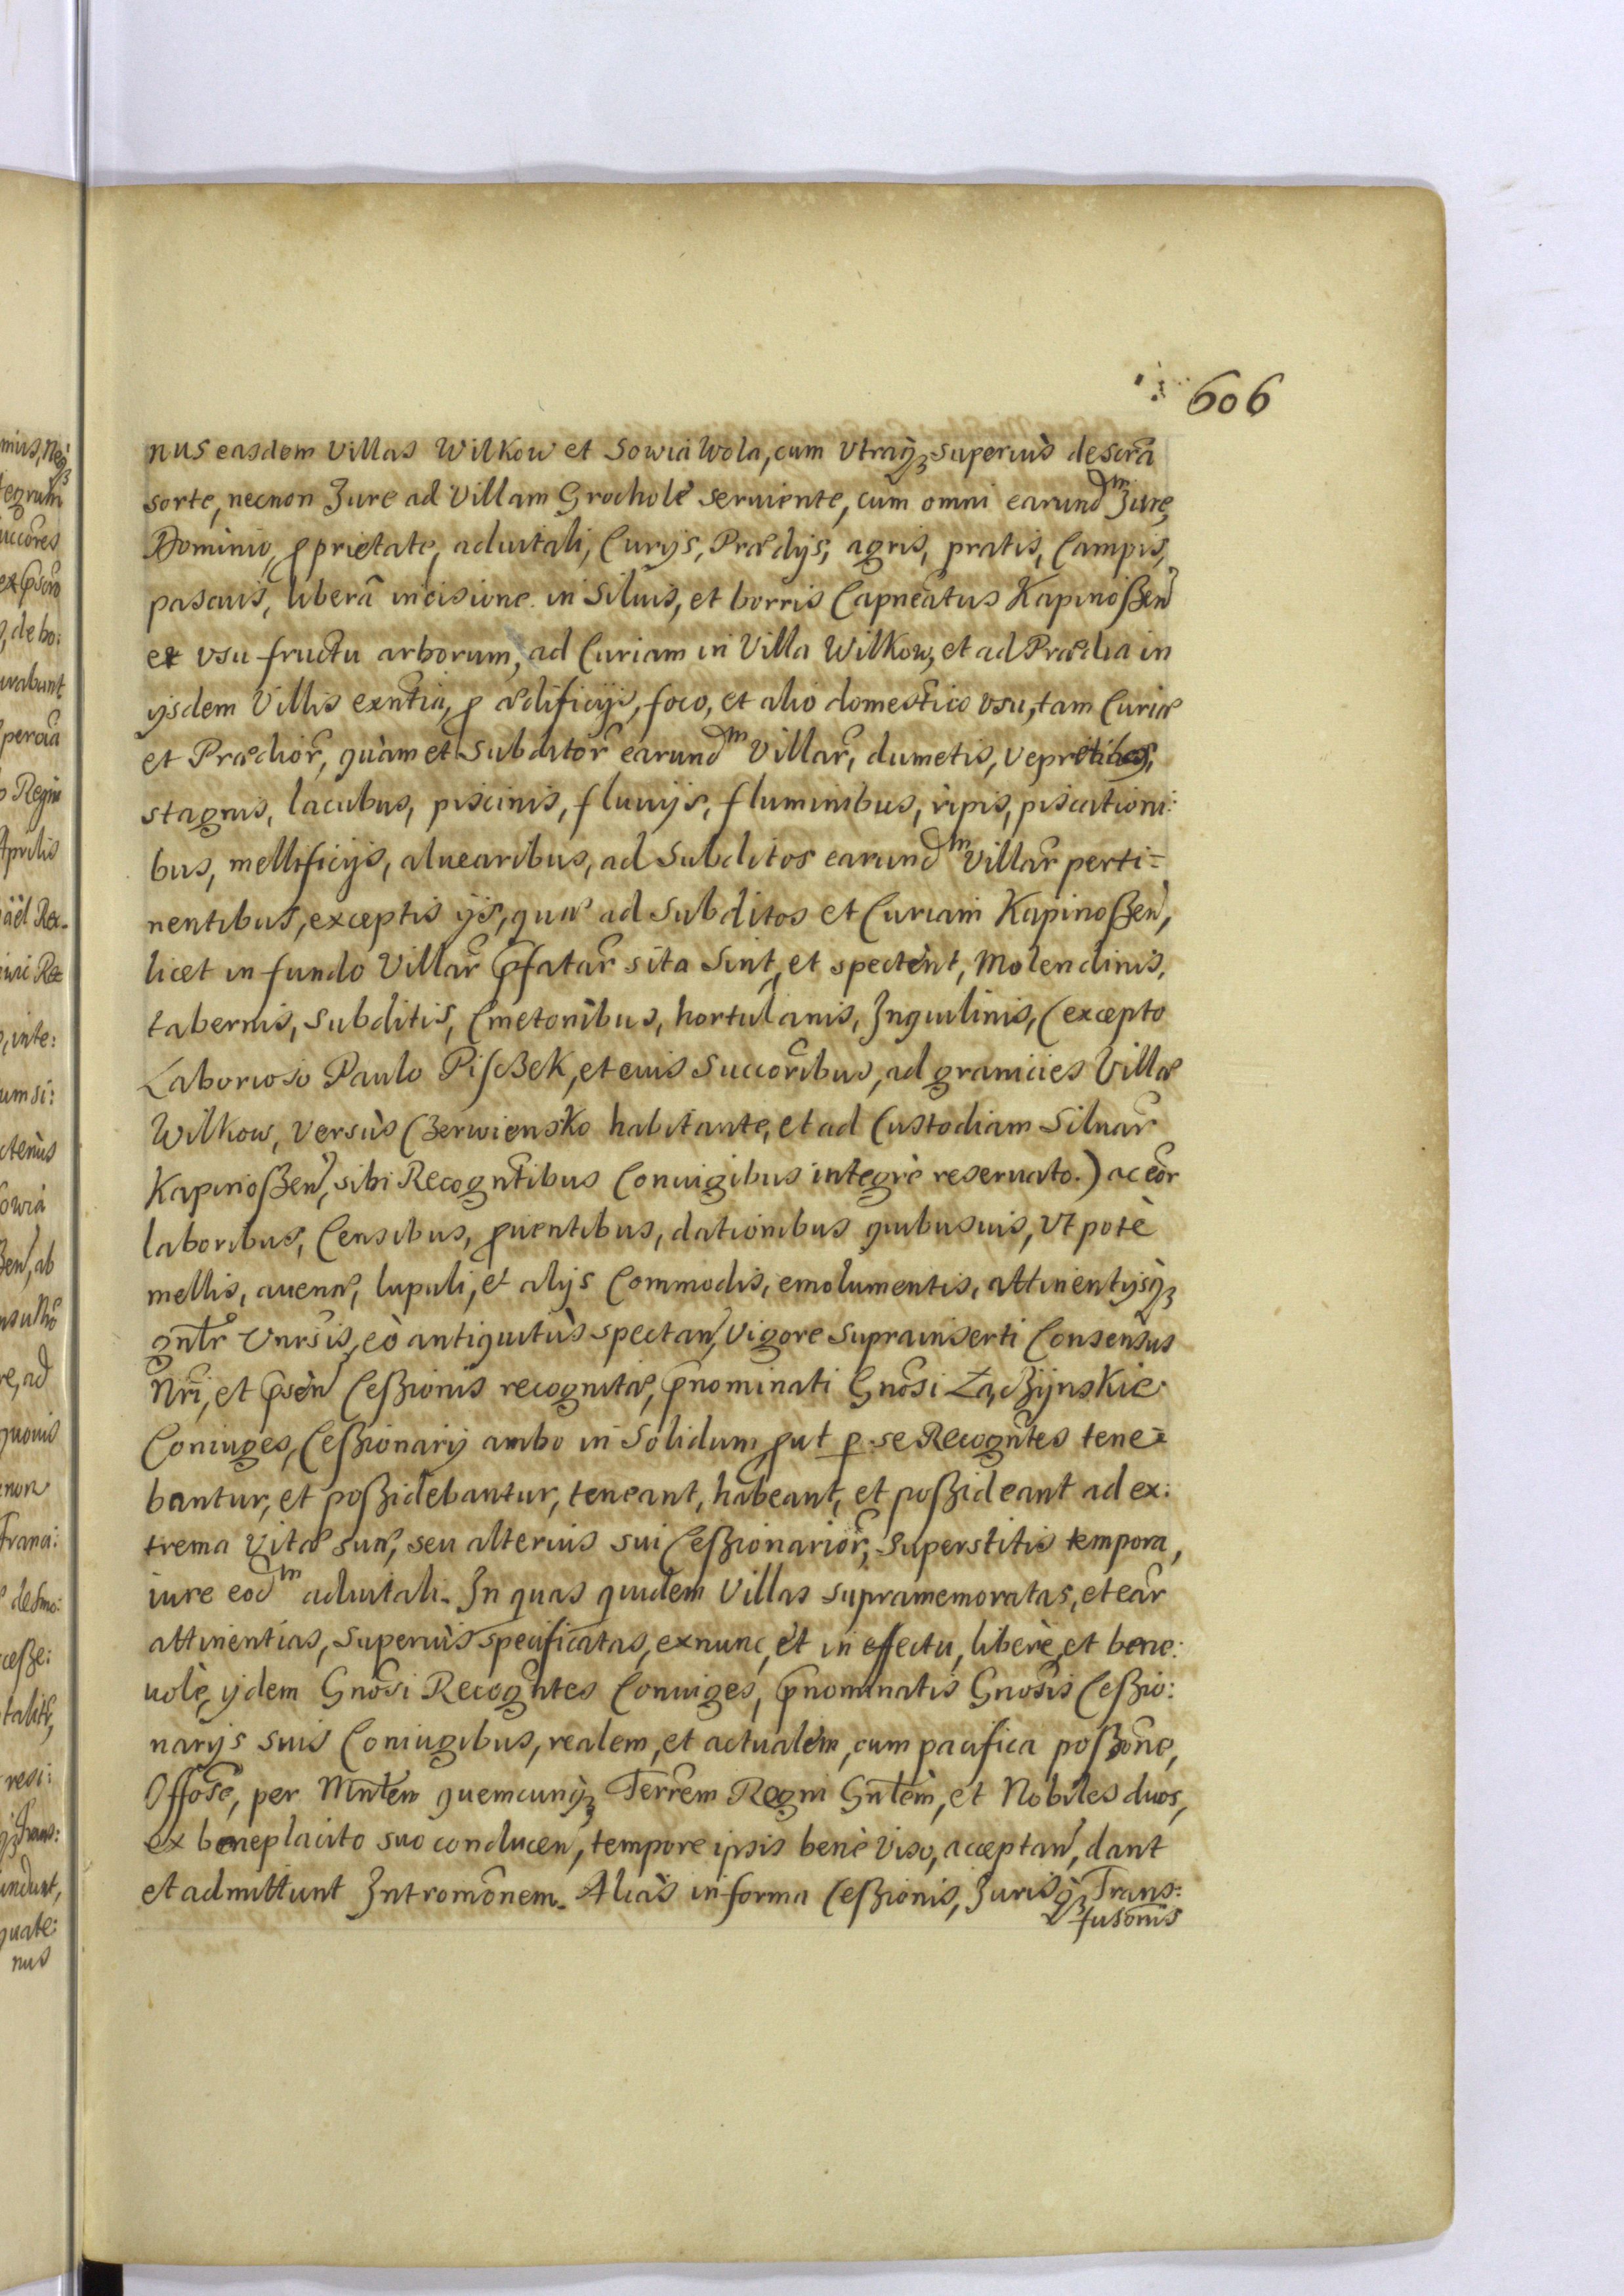 606
nus easdem Villas Wilkow et Sowia Wola, cum Utraq₃ superiùs descrã
sorte, necnon Jure ad Villam Grochole seruiente, cum omni earundᵐ Jure,
Dominio, ꝓprietate, aduitali, Curijs, Prædijs, agris, pratis, Campis,
pascuis, liberâ incisione in Siluis, et borris Capneatus Kapinoßen̄
et vsu fructu arborum, ad Curiam in Villa Wilkow, et ad Prædia in
ijsdem Villis exñtia, ꝓ ædificijs, foco, et alio domestico vsu, tam Curiæ
et Prædior̃, quàm et Subditor̃ earundᵐ Villar̃, dumetis, vepretibus,
stagnis, lacubus, piscinis, fluuijs, fluminibus, ripis, piscationi:
bus, mellificijs, aluearibus, ad Subditos earundᵐ Villar̃ perti=
nentibus, exceptis ijs, quæ ad Subditos et Curiam Kapinoßen̄,
licet in fundo Villar̃ p̃fatar̃ sita sint, et spectent, Molendinis,
tabernis, subditis, Cmetonibus, hortulanis, Jnquilinis, (excepto
Laborioso Paulo PiscBek, et euis Succor̃ibus, ad granicies Villæ
Wilkow, versùs CZerwiensko habitante, et ad Custodiam Siluar̃
Kapinoßen̄, sibi Recogñtibus Coniugibus integrè reseruato.) ac eõr
laboribus, Censibus, ꝓuentibus, dationibus quibusuis, Vtpotè
mellis, auenæ, lupuli, et alijs Commodis, emolumentis, attinentijsq₃
gñlr Vnr̃sis, eò antiquitùs spectan̄, Vigore suprainserti Consensus
Nr̃i, et p̃sen̄ Ceßionis recognitæ, p̃nominati Gnõsi ZaBijnskie
Coniuges, Ceßionarij ambo in Solidum ꝓut ꝑ se Recogñtes tene=
bantur, et poßidebantur, teneant, habeant, et poßideant ad ex:
trema Vitæ suæ, seu alterius sui Ceßionarior̃, superstitis tempora,
iure eodᵐ aduitali. In quas quidem Villas supramemoratas, et ear̃
attinentias, superiùs specificatas, exnunc, et in effectu, liberè, et bene:
uolè, ijdem Gnõsi Recogñtes Coniuges, p̃nominatis Gnõsis Ceßio:
narijs suis Coniugibus, realem, et actualem, cum pacifica poßõne,
Offõse, per Mñtem quemcunq₃ Terr̃em Regni Gñlem, et Nobiles duos,
ex beneplacito suo conducen̄, tempore ipsis benè viso, acceptan̄, dant
et admittunt Jntromõnem. Aliàs in forma Ceßionis, Jurisq₃ Trans:
fusõnis